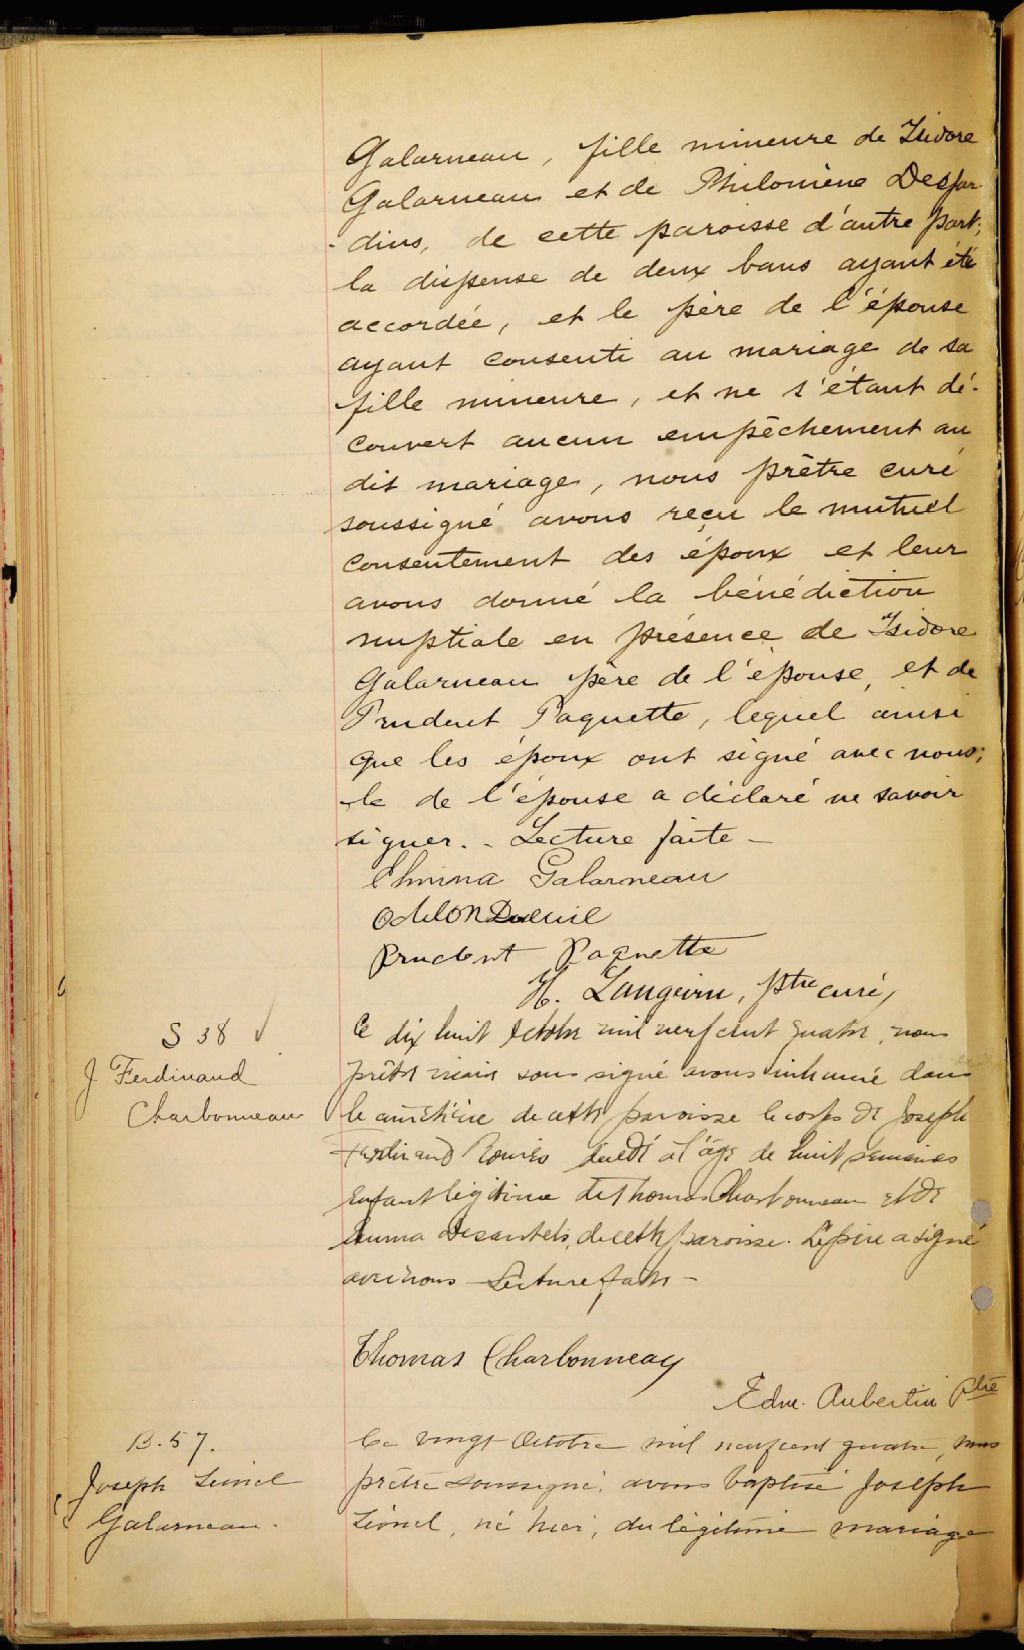 Galarneau, fille mineure de Isidore
Galarneau et de Philomène Desjar-
-dins, de cette paroisse d'autre part;
la dispense de deux bans ayant été
accordée, et le père de l'épouse
ayant consenti au mariage de sa
fille mineure, et ne s'étant dé-
couvert aucun empêchement au
dit mariage, nous prêtre curé
soussigné avons reçu le mutuel
consentement des époux et leur
avons donné la bénédiction
nuptiale en présence de Isidore
Galarneau père de l'épouse, et de
Prudent Paquette, lequel ainsi
que les époux ont signé avec nous;
le de l'épouse a déclaré ne savoir
signer. - Lecture faite -
Elmina Galarneau
Odilon
Prudent Paquette
H. Langevin, ptre curé,
S 38
J. Ferdinand
Charbonneau
Ce dix huit octobre mil neuf cent quatre, nous
prêtre vicaire sous signé avons inhumé dans
le cimetière de cette paroisse le corps de Joseph
Ferdinand décédé à l'âge de huit semaines
enfant légitime de Thomas Charbonneau et de
Emma Desautels, de cette paroisse. Le père a signé
avec nous - Lecture faite -
Thomas Charbonneau
Edm. Aubertin Ptre
B. 57.
Joseph Lionel
Galarneau.
Ce vingt Octobre mil neuf cent quatre, nous
prêtre soussigné, avons baptisé Joseph
Lionel, né hier, du légitime mariage